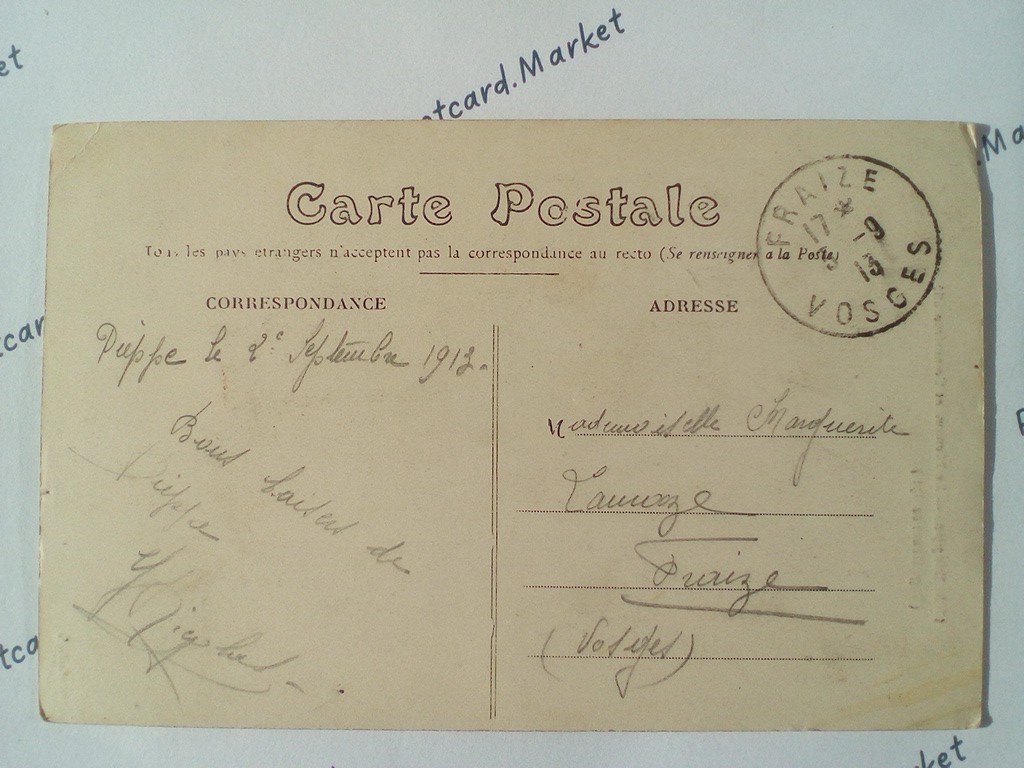 Postcard.Market
Carte Postale
Tous les pays etrangers n'acceptent pas la correspondance au recto (Se renseigner a la Poste)
FRAIZE
17 * 9
3 13
VOSGES
CORRESPONDANCE
ADRESSE
Dieppe le 2e Septembre 1913.
Bons baisers de
Dieppe
Mademoiselle Marguerite
Fraize
(Vosges)